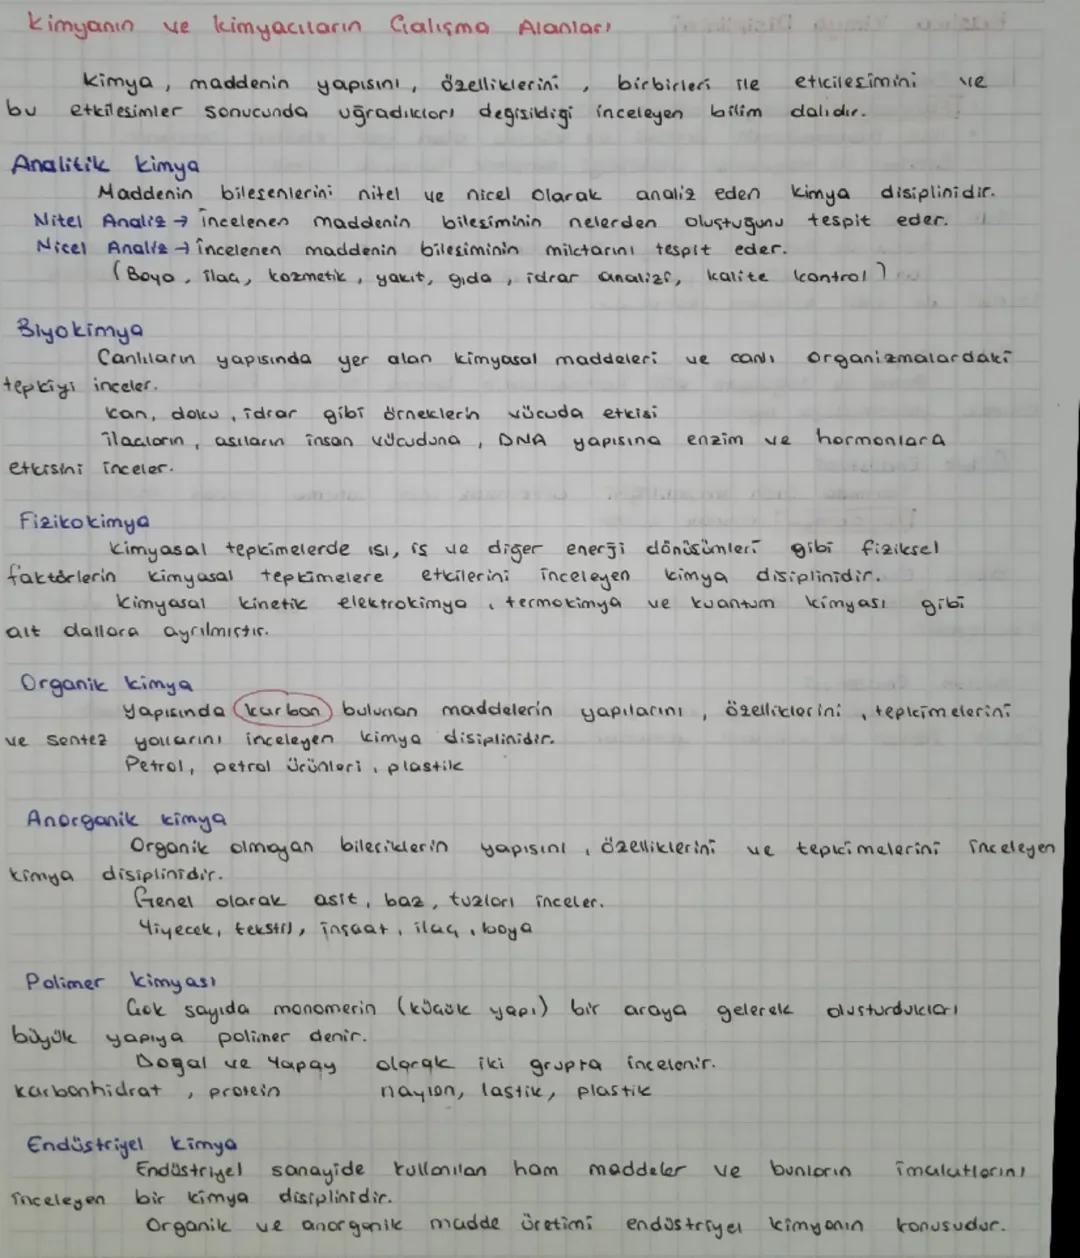 Kimyanın ve kimyacıların Çalışma Alanları
Kimya, maddenin yapısını, özelliklerini, birbirleri ile etkileşimini ve
bu etkileşimler sonucunda uğradıkları değişildiği inceleyen bilim dalıdır.
Analitik kimya
Maddenin bileşenlerini nitel ve nicel olarak analiz eden kimya disiplinidir.
Nitel Analiz → incelenen maddenin bileşiminin nelerden oluştuğunu tespit eder.
Nicel Analiz → incelenen maddenin bileşiminin miktarını tespit eder.
(Boya, ilaç, kozmetik, yakıt, gıda, idrar analizi, kalite kontrol)
Biyokimya
Canlıların yapısında yer alan kimyasal maddeleri ve canlı organizmalardaki
tepkiyi inceler.
kan, doku, idrar gibi örneklerin vücuda etkisi
ilaçların, aşıların insan vücuduna, DNA yapısına enzim ve hormonlara
etkisini inceler.
Fizikokimya
Kimyasal tepkimelerde ısı, iş ve diğer enerji dönüşümleri gibi fiziksel
faktörlerin kimyasal tepkimelere etkilerini inceleyen kimya disiplinidir.
Kimyasal kinetik elektrokimya, termokimya ve kuantum kimyası gibi
alt dallara ayrılmıştır.
Organik kimya
Yapısında karbon bulunan maddelerin yapılarını, özelliklerini, tepkimelerini
ve sentez yollarını inceleyen kimya disiplinidir.
Petrol, petrol ürünleri, plastik
Anorganik kimya
Organik olmayan bileşiklerin yapısını, özelliklerini ve tepkimelerini inceleyen
kimya disiplinidir.
Genel olarak asit, baz, tuzları inceler.
Yiyecek, tekstil, inşaat, ilaç, boya
Polimer kimyası
Çok sayıda monomerin (küçük yapı) bir araya gelerek oluşturdukları
büyük yapıya polimer denir.
Doğal ve Yapay olarak iki grupta incelenir.
karbonhidrat, protein naylon, lastik, plastik
Endüstriyel kimya
Endüstriyel sanayide kullanılan ham maddeler ve bunların imalatlarını
inceleyen bir kimya disiplinidir.
Organik ve anorganik madde üretimi endüstriyel kimyanın konusudur.